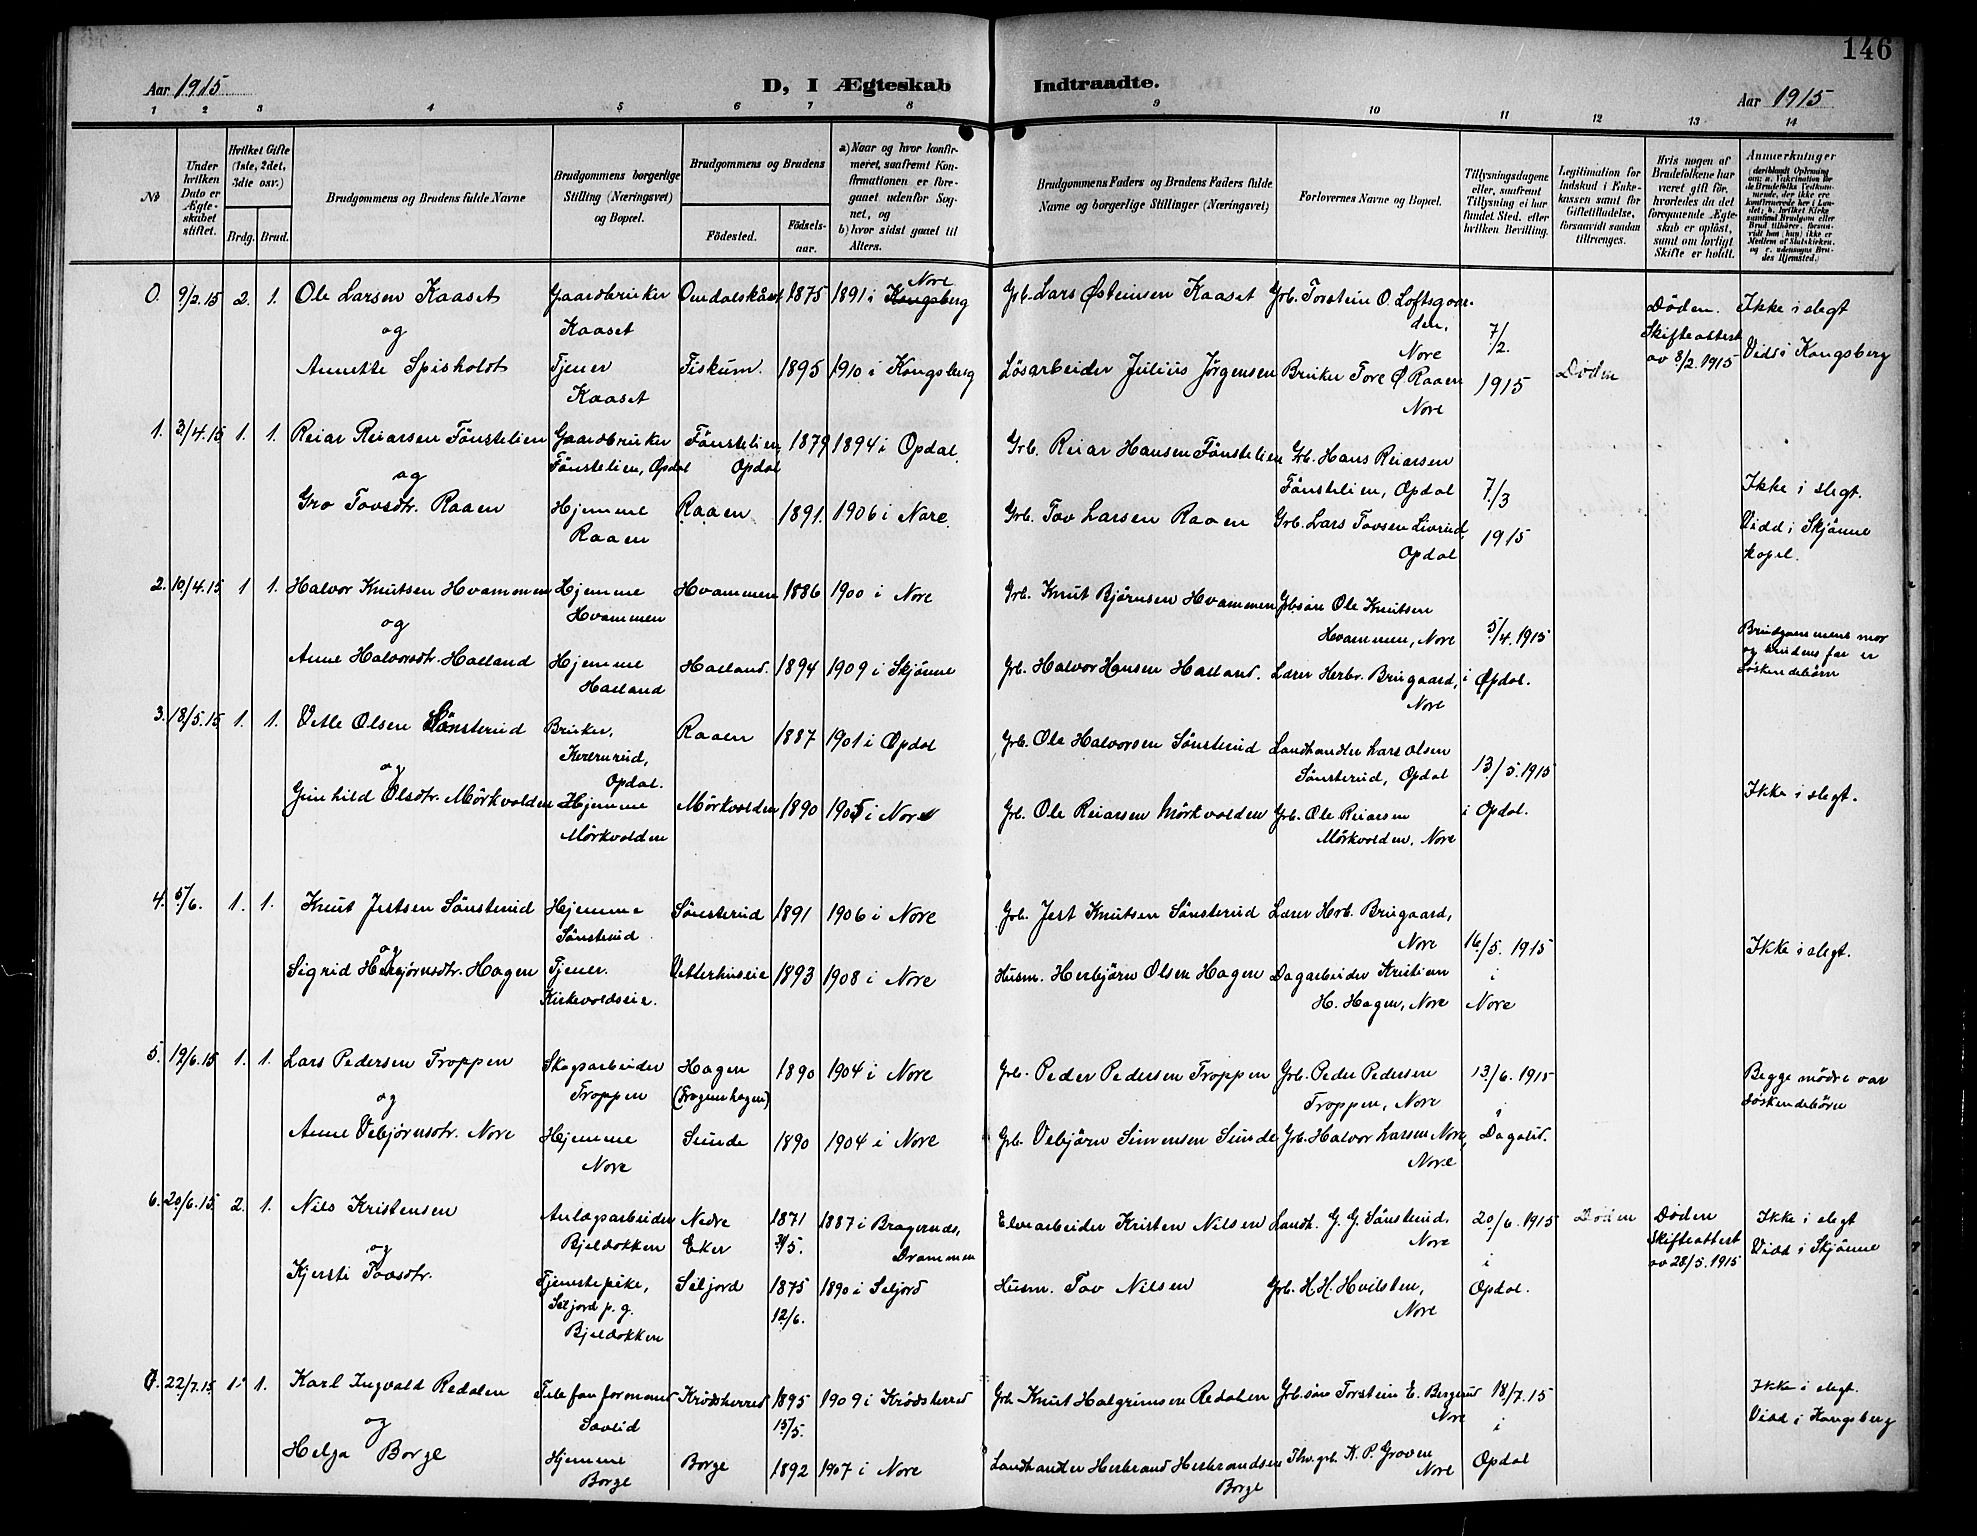 146
Aar 1915
D, I Ægteskab Indtraadte.
Aar 1915
1 2 3 4 5 6 7 8 9 10 11 12 13 14
No
Under hvilken Dato er Ægteskabet stiftet.
Hvilket Gifte (1ste, 2det, 3die osv.)
Brdg. Brud.
Brudgommens og Brudens fulde Navne
Brudgommens borgerlige Stilling (Næringsvei) og Bopæl.
Brudgommens og Brudens
Fødested.
Fødselsaar.
a) Naar og hvor konfirmeret, saafremt Konfirmationen er foregaaet udenfor Sognet, og
b) hvor sidst gaaet til Alters.
Brudgommens Faders og Brudens Faders fulde Navne og borgerlige Stillinger (Næringsvei)
Forlovernes Navne og Bopæl.
Tillysningsdagene eller, saafremt Tillysning ei har fundet Sted, efter hvilken Bevilling.
Legitimation for Indskud i Enkekassen samt for Giftetilladelse, forsaavidt saadan tiltrænges.
Hvis nogen af Brudefolkene har været gift før, hvorledes da det foregaaende Ægteskab er opløst, samt om lovligt Skifte er holdt.
Anmerkninger
0. 9/2.15 2. 1. Ole Larsen Kaaset
og
Annette Spisholdt
Gaardbruker
Kaaset
Tjener
Kaaset
1875
Fiskum. 1895
1891 i Kongsberg
Nore
1910 i Kongsberg
Grb. Lars Østeinsen Kaaset
Løsarbeider Julius Jørgensen
Grb. Torstein O. Loftsgaarden,
Nore
Bruker Tore Ø Raaen
Nore
7/2.
1915
Døden
Døden.
Skifteattest
av 8/2. 1915
Ikke i slegt
Vidd i Kongsberg
1. 3/4.15 1. 1. Reiar Reiarsen Fönstelien
og
Gro Tovsdtr. Raaen
Gaardbruker
Fönstelien, Opdal
Hjemme
Raaen
Fönstelien
Opdal 1879
Raaen 1891.
1894 i Opdal.
1906 i Nore.
Grb. Reiar Hansen Fönstelien
Grb. Tov Larsen Raaen
Grb. Hans Reiarsen
Fönstelien, Opdal
Grb. Lars Tovsen Livrud,
Opdal
7./3
1915
Ikke i slegt.
Vidd i Skjönne
kapel.
2. 10/4.15 1 1. Halvor Knutsen Hvammen
og
Anne Halvorsdtr. Haaland
Hjemme
Hvammen
Hjemme
Haaland
Hvammen 1886
Haaland. 1894
1900 i Nore
1909 i Skjönne
Grb. Knut Björnsen Hvammen
Grb. Halvor Hansen Haaland.
Grbsøn Ole Knutsen
Hvammen, Nore
Lærer Herbr. Brugaard,
Nore
5/4.1915
i Opdal.
Brudgommens mor
og brudens far er
söskendebörn
3. 18/5.15 1. 1. Vetle Olsen Sönsterud
og
Gunhild Olsdtr. Mörkvolden
Bruker,
Kvernrud,
Opdal.
Hjemme
Mörkvolden
Raaen 1887
Mörkvolden 1890
1901 i Opdal
1905 i Nore
Grb. Ole Halvorsen Sönsterud
Grb. Ole Reiarsen Mörkvolden
Landhandler Lars Olsen
Sönsterud, Opdal
Grb. Ole Reiarsen
Mörkvolden, Nore
13/5.1915
i Opdal.
Ikke i slegt.
4. 5/6. 1. 1. Knut Jertsen Sönsterud
og
Sigrid Herbjörnsdtr. Hagen
Hjemme
Sönsterud
Tjener.
Kirkevoldseie.
Sönsterud 1891
Vetterhuseie 1893
1906 i Nore
1908 i Nore
Grb. Jert Knutsen Sönsterud
Husm. Herbjörn Olsen Hagen
Lærer Hrb. Brugaard,
Nore
Dagarbeider Kristian
H. Hagen, Nore
16/5. 1915
i
Nore
Ikke i slegt.
5. 19/6.15 1. 1. Lars Pedersen Troppen
og
Anne Vebjörnsdtr. Nore
Skogsarbeider
Troppen
Hjemme
Nore
Hagen
1890
Sunde 1890
1904 i Nore
1904 i Nore
Grb. Peder Pedersen Troppen
Grb. Vebjörn Simensen Sunde
Grb. Peder Pedersen
Troppen, Nore
Grb. Halvor Larsen Nore,
Nore
13/6.1915
i
Dagalid.
Begge mödre var
söskendebörn
6. 20/6.15. 2. 1. Nils Kristensen
og
Kjersti Tovsdtr.
Anlægsarbeider
Bjeldokken
Tjenestepike,
Seljord p.g.
Bjeldokken
Nedre
Eker
1871
Seljord 1875
12/6.
1887 i Bragernes,
Drammen
1890 i Seljord
Elvearbeider Kristen Nilsen
Husm. Tov Nilsen
Landh. G. G. Sönsterud.
Nore
Grb. H. H. Hvilsten,
Nore
20/6.1915
i
Opdal.
Döden
Döden
Skifteattest
av 28/5.1915
Ikke i slegt
Vidd i Skjönne
22/7.15 1. 1. Karl Ingvald Redalen
og
Helga Borge
Telefonformand
Savlid
Hjemme
Borge
Krödsherred 1895
15/5.
Borge 1892
1909 i Krödsherred
1907 i Nore
Grb. Knut Halgrimsen Redalen
Landhandler Herbrand Herbrandsen
Borge
Grb.sön Torstein E. Bergerud
Nore
K. P. Groven
Nore
18/7.15
i
Opdal
Ikke i slegt.
Vidd i Kongsberg